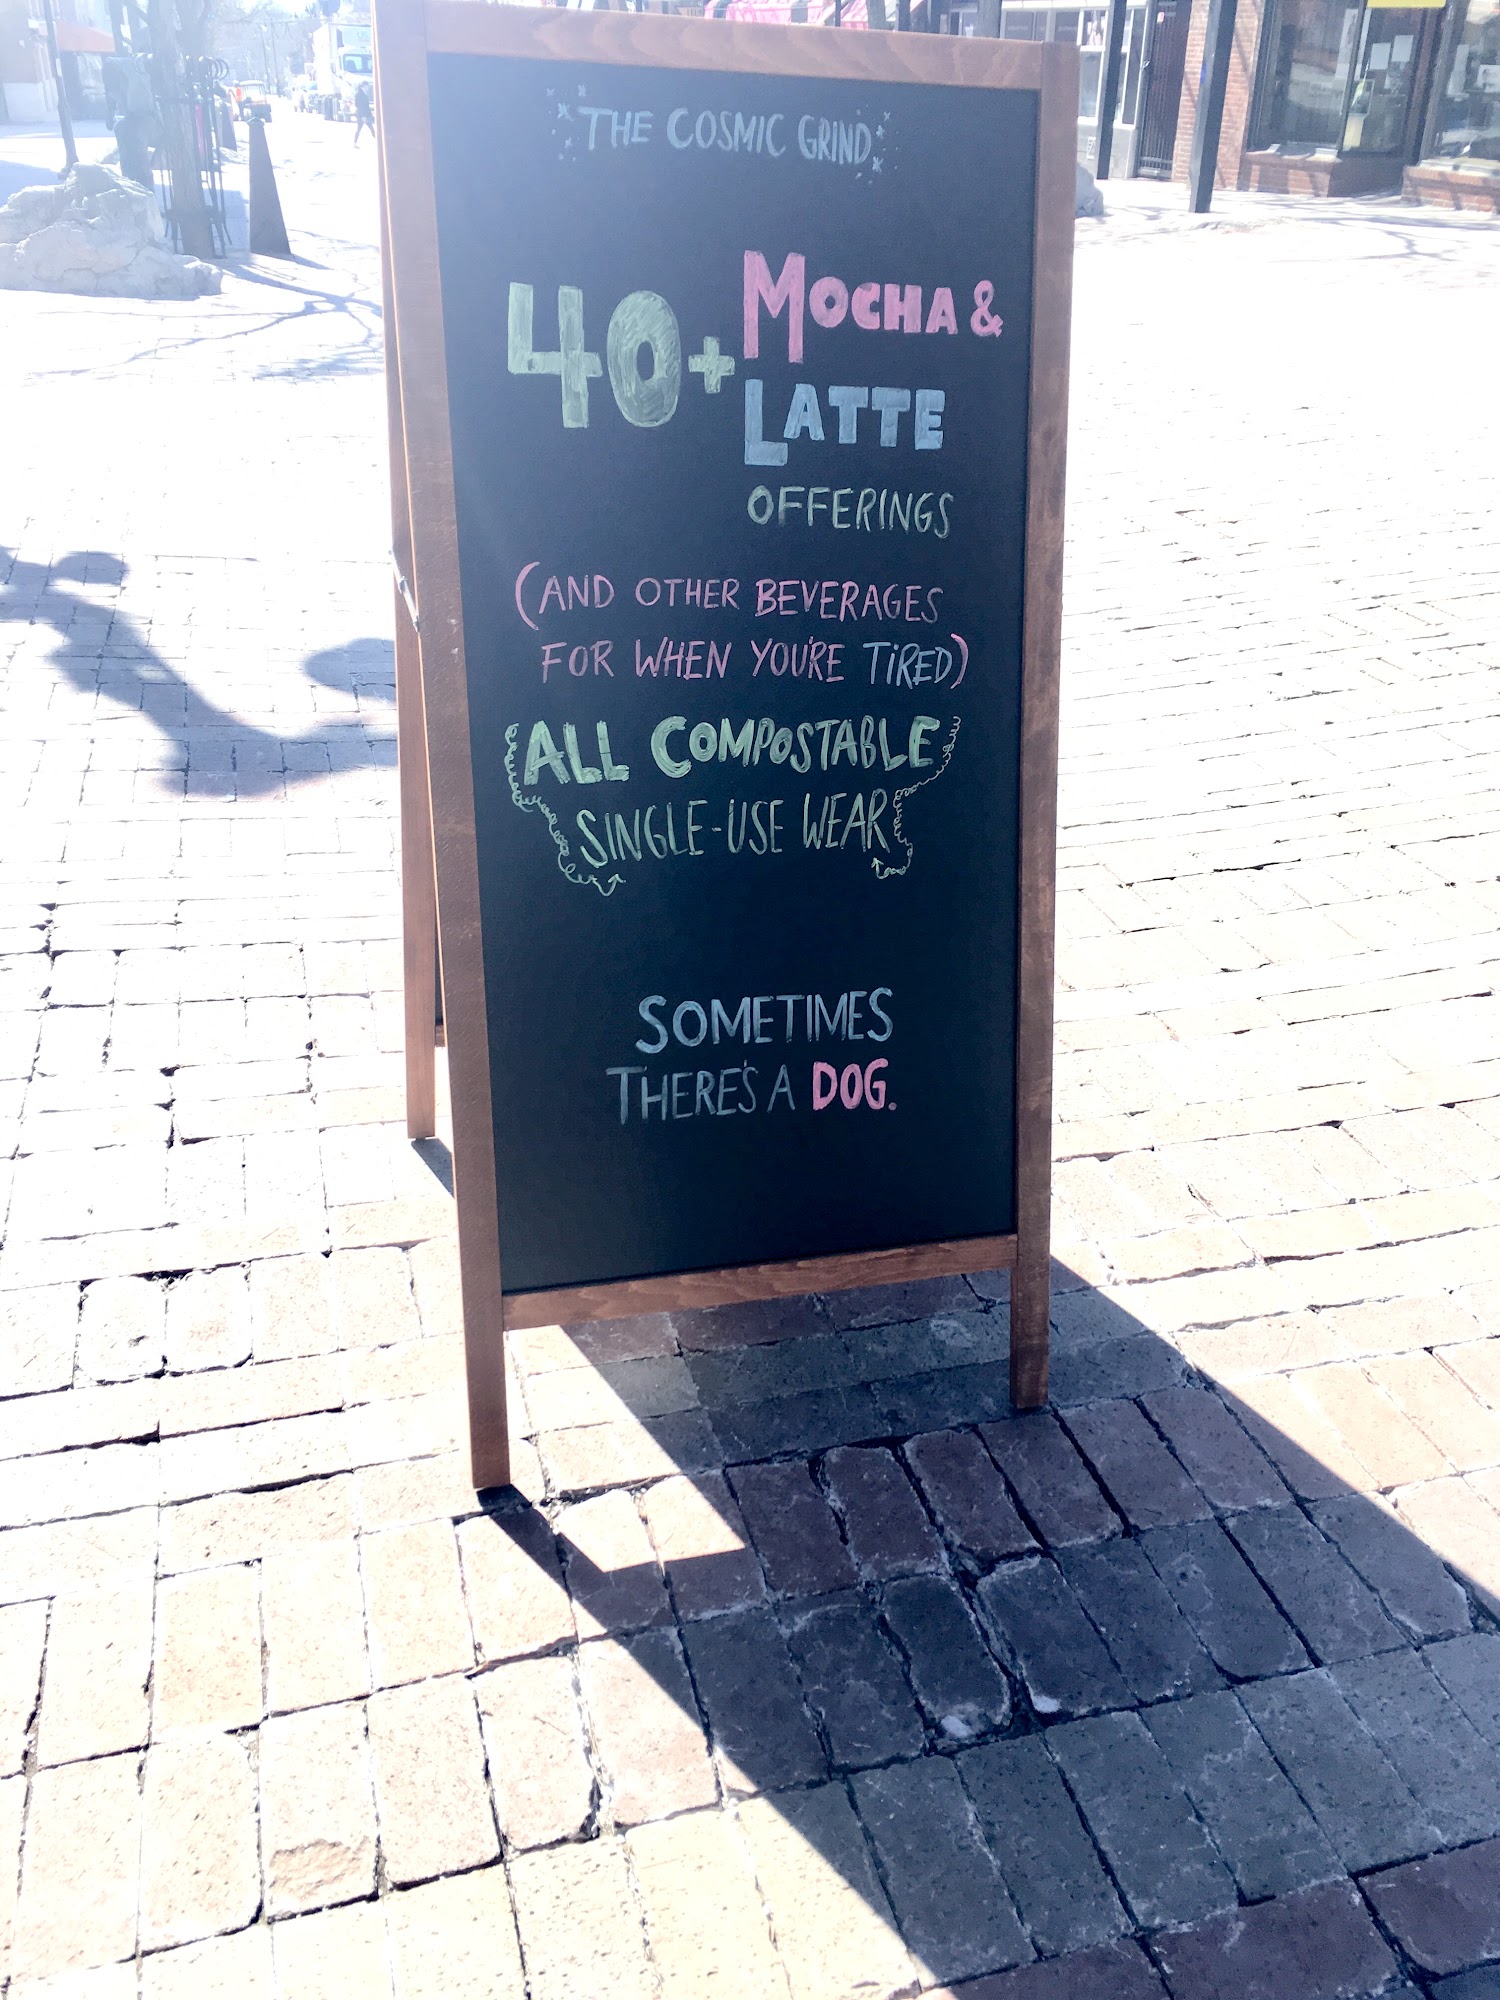 THE COSMIC GRIND
40+ MOCHA &
LATTE
OFFERINGS
(AND OTHER BEVERAGES
FOR WHEN YOU'RE TIRED)
ALL COMPOSTABLE
SINGLE-USE WEAR
SOMETIMES
THERE'S A DOG.